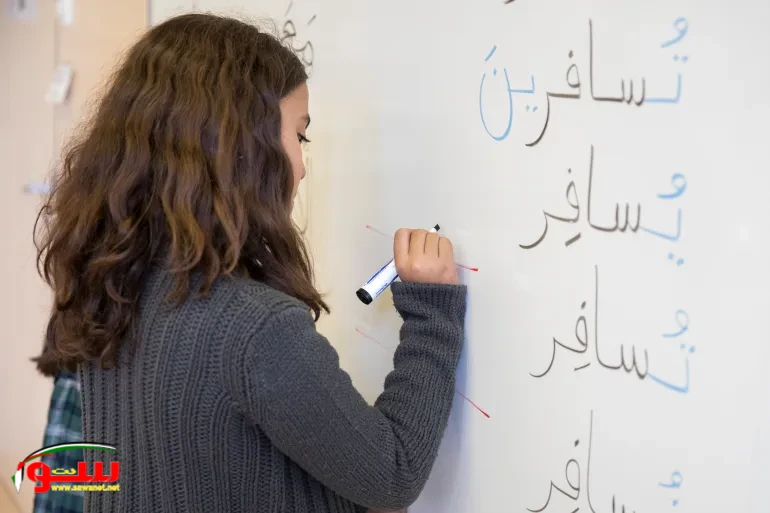 تُسافِرينَ
يُسافِر
تُسافِر
سافِر
سوا
نت
www.sawanet.net